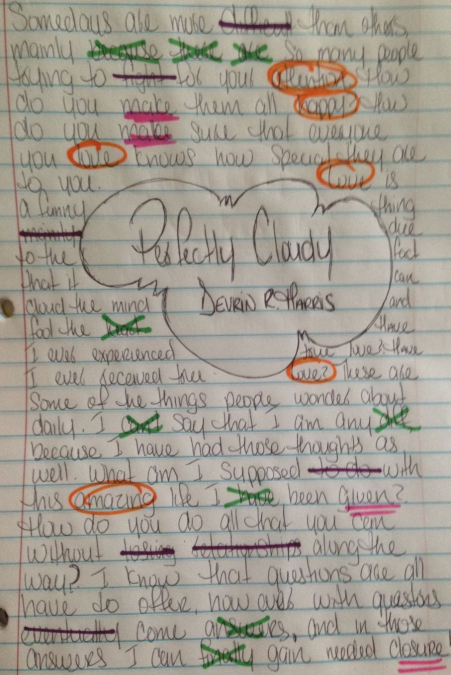 Somedays are more difficult than others,
mainly because there are so many people
trying to fight for your attention. How
do you make them all happy? How
do you make sure that everyone
you love knows how special they are
to you. Love is
a funny thing
mainly due
to the fact
that it can
Perfectly Cloudy
Devrin R. Harris
cloud the mind and
fool the heart. Have
I ever experienced true love? Have
I ever received true love? These are
some of the things people wonder about
daily. I can't say that I am any
because I have had those thoughts as
well. What am I supposed to do with
this amazing life I have been given?
How do you do all that you can
without losing relationships along the
way? I know that questions are all
have to offer, however with questions
eventually come answers, and in those
answers I can finally gain needed closure!